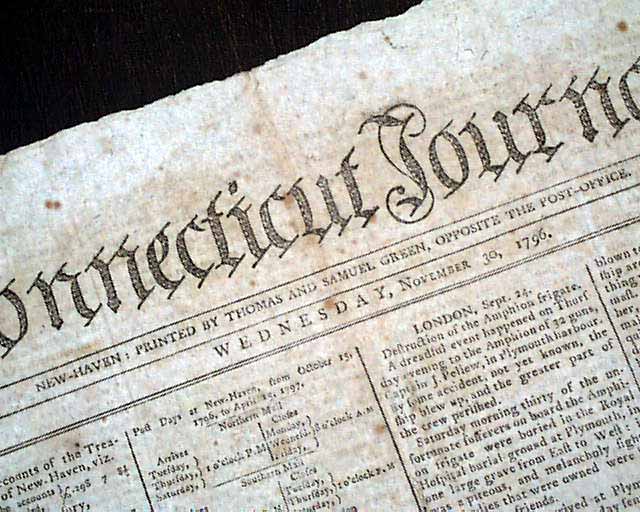 onnecticut Journa
NEW-HAVEN: PRINTED BY THOMAS AND SAMUEL GREEN, OPPOSITE THE POST-OFFICE.
WEDNESDAY, NOVEMBER 30, 1796.
ccounts of the Trea-
of New-Haven, viz.
accounts
Post Days at New-Haven, from October 15,
1796, to April 15, 1797.
Northern Mail
Arrives Closes
Tuesday, Monday,
Thursday, 1 o'clock P.M. o'clock A.M
Saturday, Friday,
Southern Mail
Arrives Closes
Tuesday, Tuesday,
Thursday,
Saturday,
LONDON, Sept. 24.
Destruction of the Amphion frigate.
A dreadful event happened on Thurs
day evening to the Amphion of 32 guns,
Capt. Sir J. Pellew, in Plymouth harbour.
By some accident, not yet known, the
ship blew up, and the greater part of
the crew perished.
Saturday morning thirty of the un-
fortunate sufferers on board the Amphi-
on frigate were buried in the Royal
Hospital burial ground at Plymouth, in
one large grave from East to West:
was a piteous, and melancholy fig
bodies that were owned were
friends.
arrived at Plym
blown
things